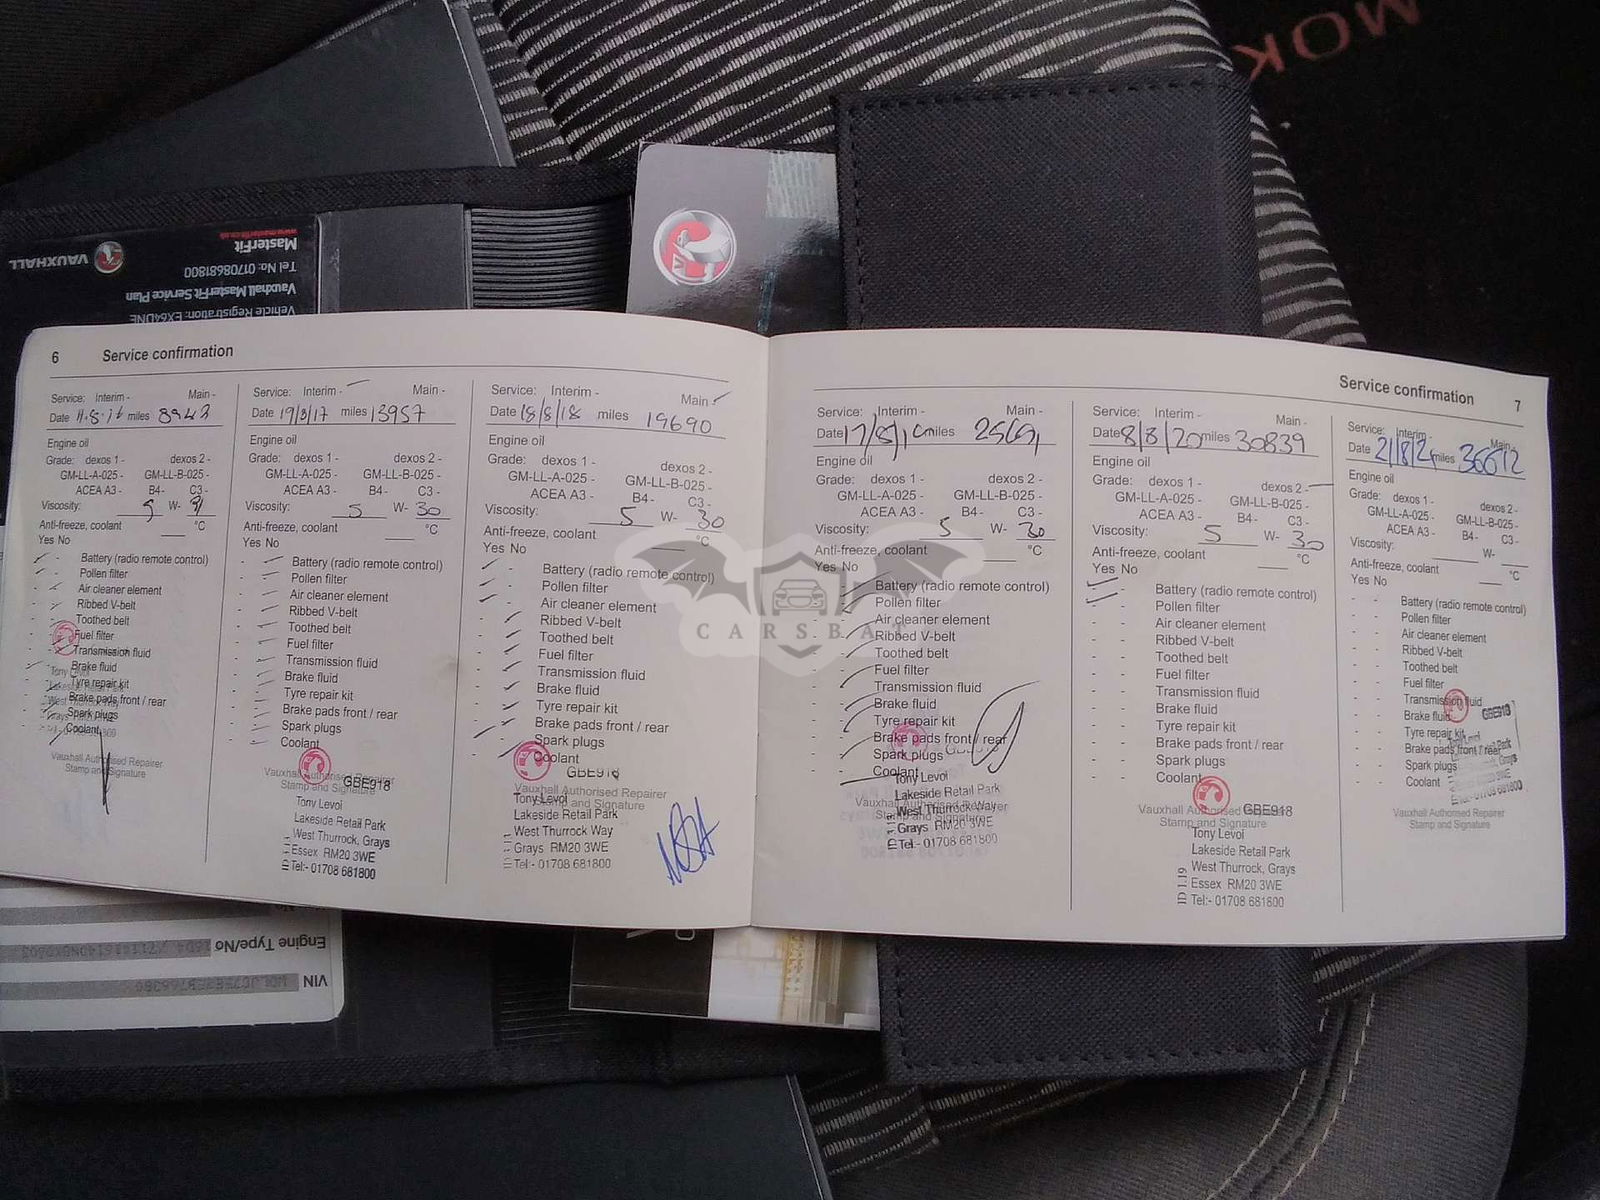 MOK
VAUXHALL
MasterFit
www.masterfit.co.uk
Tel No: 01708681800
Vauxhall MasterFit Service Plan
Vehicle Registration: EX64UNE
6 Service confirmation
Service: Interim - Main -
Date 11.8.16 miles 8943
Engine oil
Grade: dexos 1 - dexos 2 -
GM-LL-A-025 - GM-LL-B-025 -
ACEA A3 - B4- C3 -
Viscosity: 5 W-
Anti-freeze, coolant °C
Yes No
Battery (radio remote control)
Pollen filter
Air cleaner element
Ribbed V-belt
Toothed belt
Fuel filter
Transmission fluid
Brake fluid
Tyre repair kit
Brake pads front / rear
Spark plugs
Coolant
Vauxhall Authorised Repairer
Stamp and Signature
Service: Interim - Main -
Date 19/8/17 miles 13957
Engine oil
Grade: dexos 1 - dexos 2 -
GM-LL-A-025 - GM-LL-B-025 -
ACEA A3 - B4- C3 -
Viscosity: 5 W- 30
Anti-freeze, coolant °C
Yes No
Battery (radio remote control)
Pollen filter
Air cleaner element
Ribbed V-belt
Toothed belt
Fuel filter
Transmission fluid
Brake fluid
Tyre repair kit
Brake pads front / rear
Spark plugs
Coolant
Vauxhall Authorised Repairer
Stamp and Signature
GBE918
Tony Levoi
Lakeside Retail Park
West Thurrock, Grays
Essex RM20 3WE
Tel:- 01708 681800
Service: Interim - Main -
Date 18/8/18 miles 19690
Engine oil
Grade: dexos 1 - dexos 2 -
GM-LL-A-025 - GM-LL-B-025 -
ACEA A3 - B4- C3 -
Viscosity: 5 W- 30
Anti-freeze, coolant °C
Yes No
Battery (radio remote control)
Pollen filter
Air cleaner element
Ribbed V-belt
Toothed belt
Fuel filter
Transmission fluid
Brake fluid
Tyre repair kit
Brake pads front / rear
Spark plugs
Coolant
GBE918
Vauxhall Authorised Repairer
Stamp and Signature
Tony Levoi
Lakeside Retail Park
West Thurrock Way
Grays RM20 3WE
Tel:- 01708 681800
Service confirmation 7
Service: Interim - Main -
Date 17/8/19 miles
Engine oil
Grade: dexos 1 - dexos 2 -
GM-LL-A-025 - GM-LL-B-025 -
ACEA A3 - B4- C3 -
Viscosity: 5 W- 30
Anti-freeze, coolant °C
Yes No
Battery (radio remote control)
Pollen filter
Air cleaner element
Ribbed V-belt
Toothed belt
Fuel filter
Transmission fluid
Brake fluid
Tyre repair kit
Brake pads front / rear
Spark plugs
Coolant
Vauxhall Authorised Repairer
Stamp and Signature
Tony Levoi
Lakeside Retail Park
West Thurrock Way
Grays RM20 3WE
Tel:- 01708 681800
Service: Interim - Main -
Date 8/8/20 miles 30839
Engine oil
Grade: dexos 1 - dexos 2 -
GM-LL-A-025 - GM-LL-B-025 -
ACEA A3 - B4- C3 -
Viscosity: 5 W- 30
Anti-freeze, coolant °C
Yes No
Battery (radio remote control)
Pollen filter
Air cleaner element
Ribbed V-belt
Toothed belt
Fuel filter
Transmission fluid
Brake fluid
Tyre repair kit
Brake pads front / rear
Spark plugs
Coolant
Vauxhall Authorised Repairer
Stamp and Signature
GBE918
Tony Levoi
Lakeside Retail Park
West Thurrock, Grays
Essex RM20 3WE
ID 1.19 Tel:- 01708 681800
Service: Interim - Main -
Date 21/8/21 miles 36612
Engine oil
Grade: dexos 1 - dexos 2 -
GM-LL-A-025 - GM-LL-B-025 -
ACEA A3 - B4- C3 -
Viscosity: W-
Anti-freeze, coolant °C
Yes No
Battery (radio remote control)
Pollen filter
Air cleaner element
Ribbed V-belt
Toothed belt
Fuel filter
Transmission fluid
Brake fluid
Tyre repair kit
Brake pads front / rear
Spark plugs
Coolant
GBE918
Vauxhall Authorised Repairer
Stamp and Signature
CARSBAT
Engine Type/No
VIN